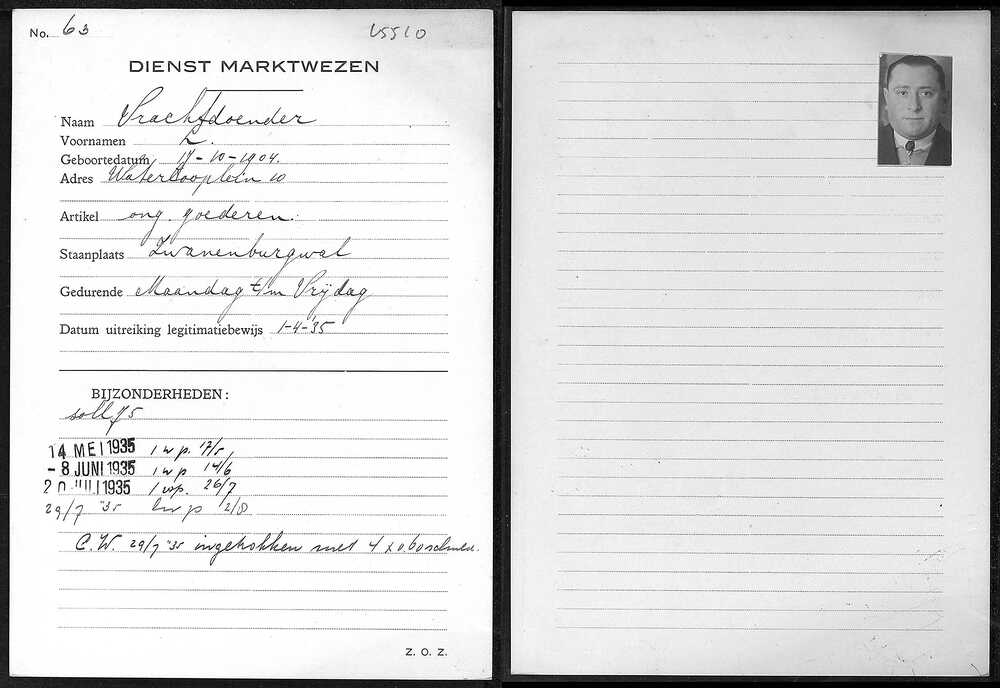 No. 63
DIENST MARKTWEZEN
Naam Vrachtdoender
Voornamen L.
Geboortedatum 17-10-1904.
Adres Waterlooplein 10
Artikel ong. goederen.
Staanplaats Zwanenburgwal
Gedurende Maandag t/m Vrijdag
Datum uitreiking legitimatiebewijs 1-4-'35
BIJZONDERHEDEN:
soll 75
14 MEI 1935 1 wp. 17/5
- 8 JUNI 1935 1 wp 14/6
20 JULI 1935 1 wp. 26/7
29/7 '35 1 wp 2/8
C.W. 29/7 '35 ingetrokken met 4 x 0.60 schuld.
Z. O. Z.